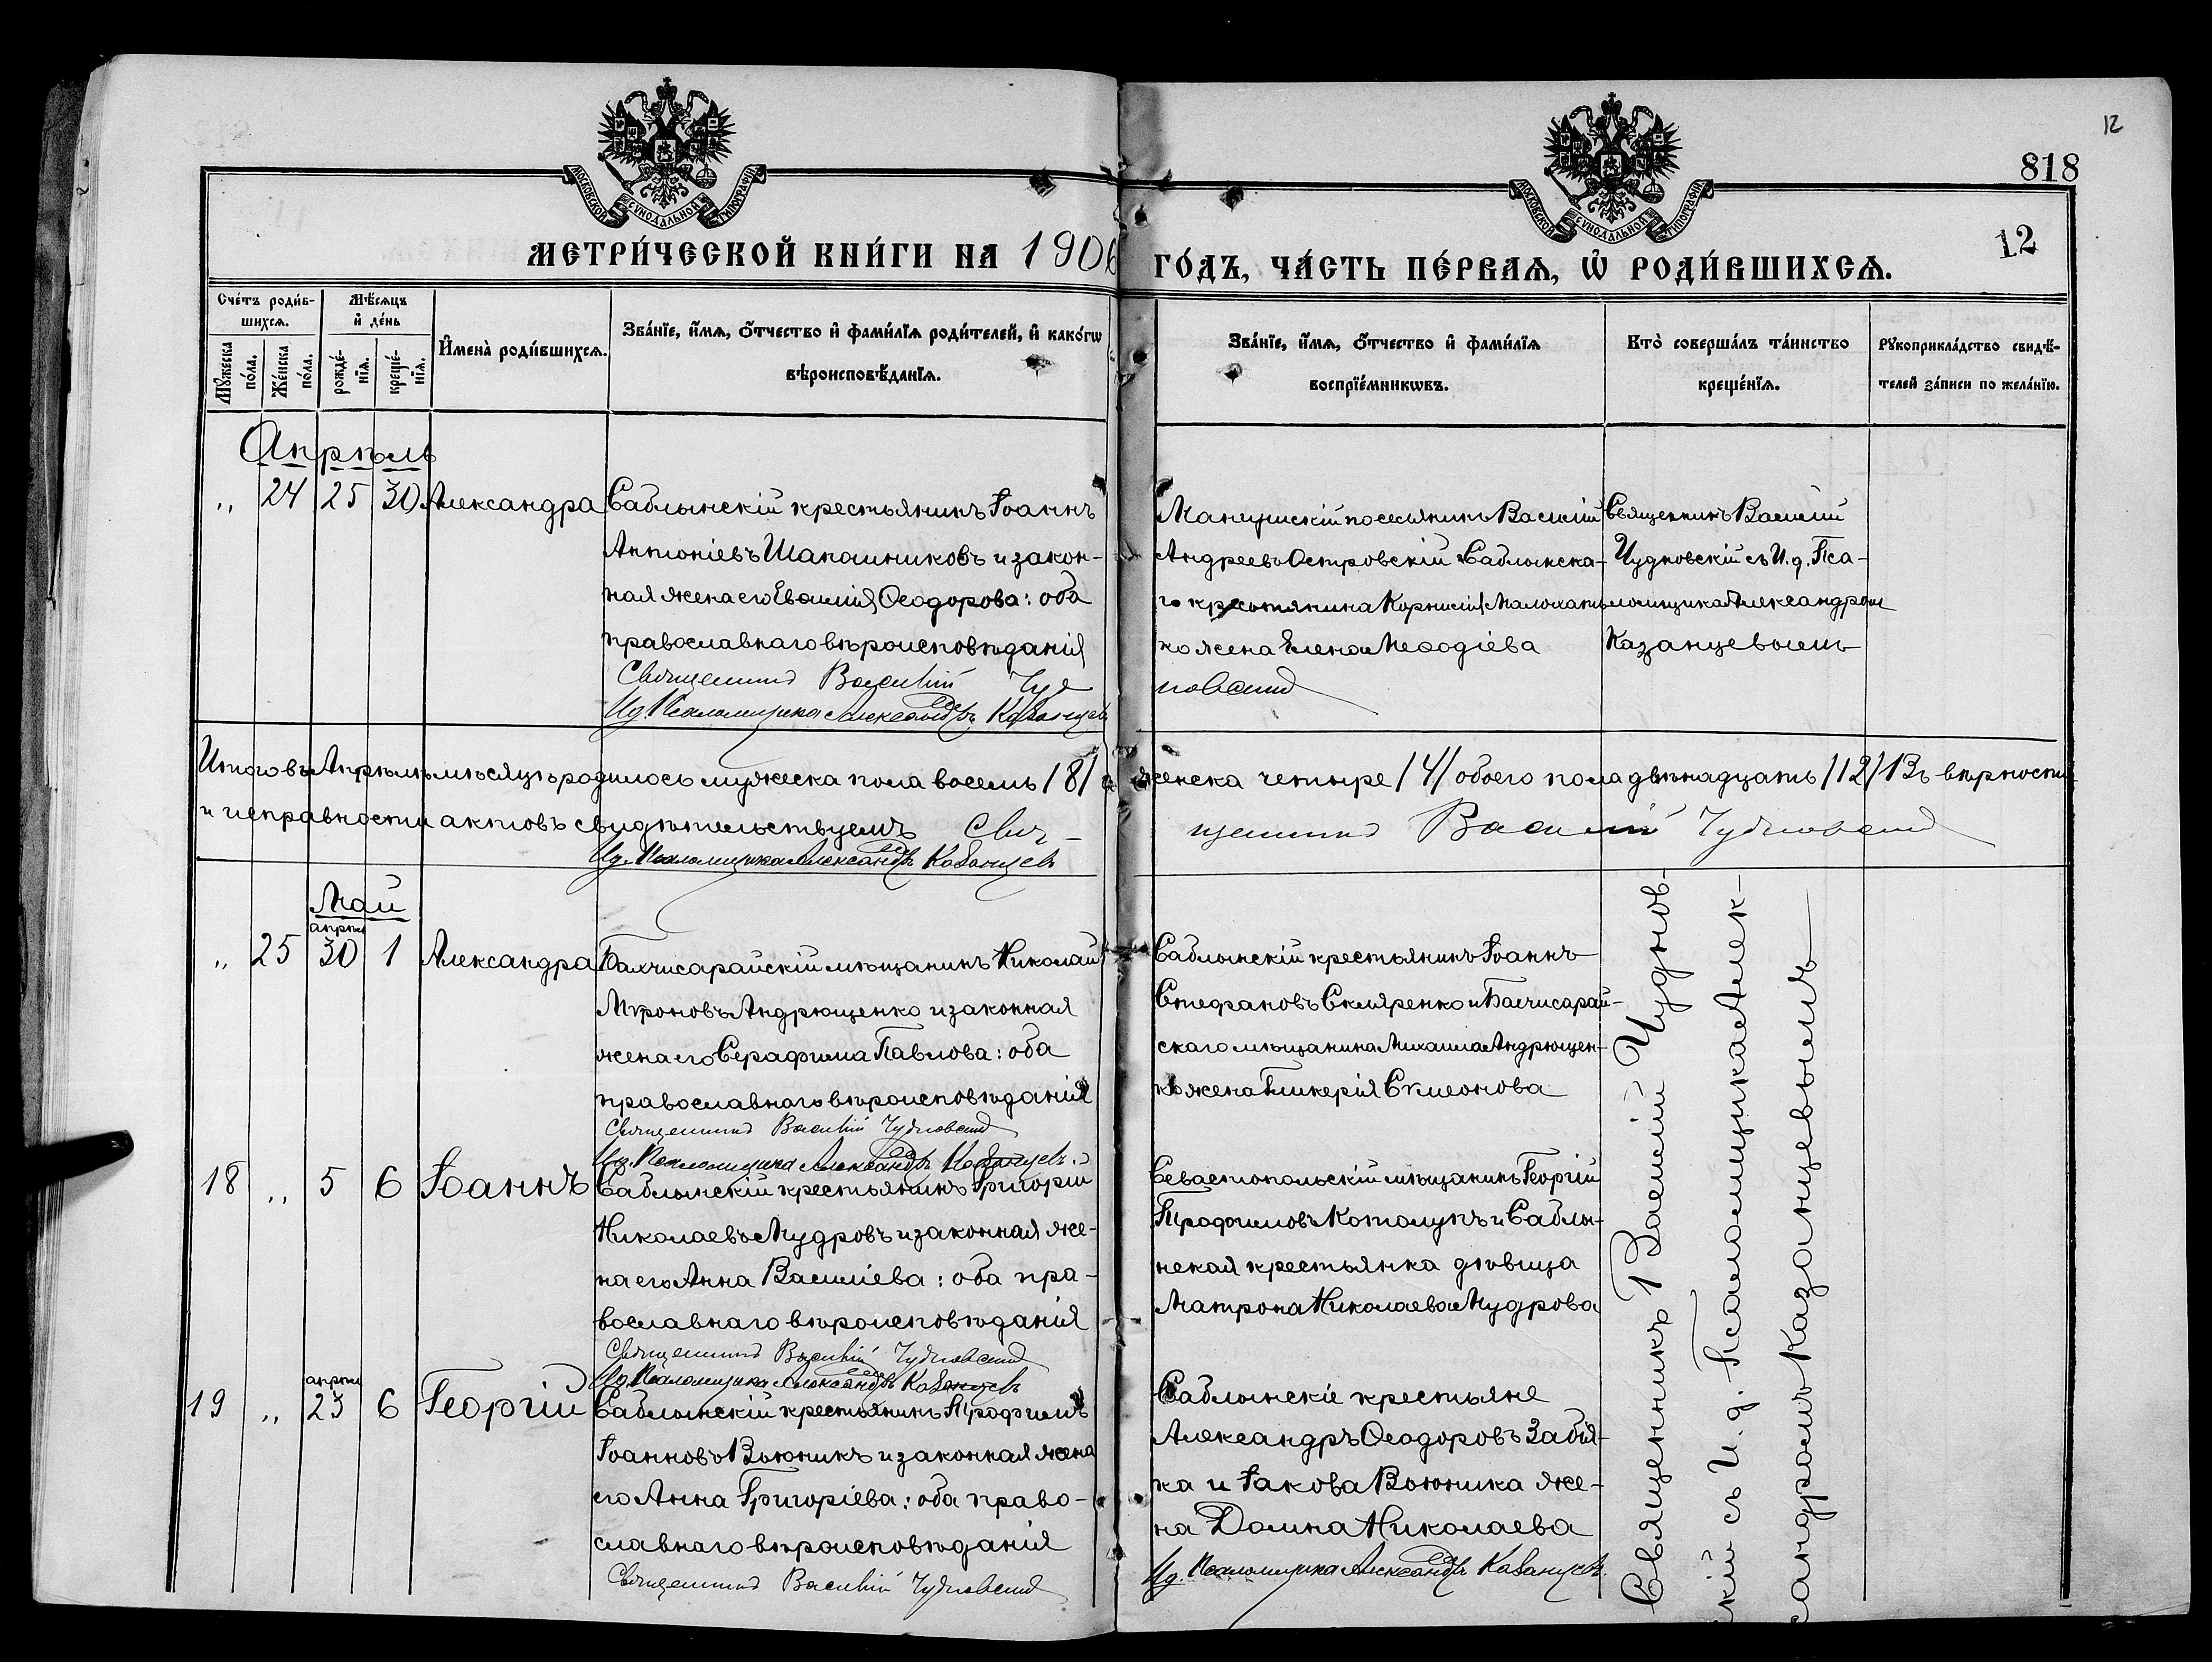 12
818
12
МОСКОВСКОЙ СѴНОДАЛЬНОЙ ТИПОГРАФІИ
МОСКОВСКОЙ СѴНОДАЛЬНОЙ ТИПОГРАФІИ
МЕТРИ́ЧЕСКОЙ КНИ́ГИ НА 1906 ГО́ДЪ, ЧА́СТЬ ПЕ́РВАЯ, Ѽ РОДИ́ВШИХСЯ.
Сче́тъ роди́в-
шихся.
Мꙋ́жеска по́ла.
Же́нска по́ла.
Мѣ́сяцъ и҆ де́нь
рожде́-
нїя.
креще́-
нїя.
И҆мена̀ роди́вшихся.
Зва́нїе, и҆́мя, ѻ҆́тчество и҆ фами́лїя роди́телей, и҆ како́гѡ
вѣроисповѣ́данїя.
Зва́нїе, и҆́мя, ѻ҆́тчество и҆ фами́лїя
воспрїе́мникѡвъ.
Кто̀ соверша́лъ та́инство
креще́нїя.
Рꙋкоприкла́дство свидѣ́-
телей за́писи по жела́нїю.
Апрѣль
„ 24 25 30 Александра
Саблынскій крестьянинъ Іоаннъ
Антоніевъ Шапошниковъ и закон-
ная жена его Евѳимія Ѳеодорова: оба
православнаго вѣроисповѣданія
Мангушскій поселянинъ Василій
Андреевъ Островскій и Саблынска-
го крестьянина Корнилія Малохать-
ко жена Елена Меѳодіева
Священникъ Василій
Чудновскій съ И. д. Пса-
ломщика Александромъ
Казанцевымъ
Священникъ Василій Чудновскій
И.д. Псаломщика Александръ Казанцевъ
Итого въ Апрѣлѣ мѣсяцѣ родилось мужеска пола восемь /8/ и женска четыре /4/ обоего пола двѣнадцать /12/ Въ вѣрности
и исправности актовъ свидѣтельствуемъ Свя-
щенникъ Василій Чудновскій
И.д. Псаломщика Александръ Казанцевъ
Май
„ 25 апрѣл 30 1 Александра
Бахчисарайскій мѣщанинъ Николай
Мѵроновъ Андрющенко и законная
жена его Серафима Павлова: оба
православнаго вѣроисповѣданія
Священникъ Василій Чудновскій
И.д. Псаломщика Александръ Казанцевъ
Саблынскій крестьянинъ Іоаннъ
Стефановъ Скляренко и Бахчисарай-
скаго мѣщанина Михаила Андрющен-
ко жена Гликерія Сѵмеонова
18 „ 5 6 Іоаннъ
Саблынскій крестьянинъ Григорій
Николаевъ Мудровъ и законная же-
на его Анна Василіева: оба пра-
вославнаго вѣроисповѣданія
Священникъ Василій Чудновскій
И.д. Псаломщика Александръ Казанцевъ
Севастопольскій мѣщанинъ Георгій
Трофимовъ Котолупъ и Саблы-
нская крестьянка дѣвица
Матрона Николаева Мудрова
19 „ апрѣл 23 6 Георгій
Саблынскій крестьянинъ Трофимъ
Іоанновъ Вьюникъ и законная жена
его Анна Григоріева: оба право-
славнаго вѣроисповѣданія
Священникъ Василій Чудновскій
Саблынскіе крестьяне
Александръ Ѳеодоровъ Забія-
ка и Іакова Вьюника же-
на Домна Николаева
И.д. Псаломщика Александръ Казанцевъ.
Священникъ Василій Чуднов-
скій съ И. д. Псаломщика Алек-
сандромъ Казанцевымъ